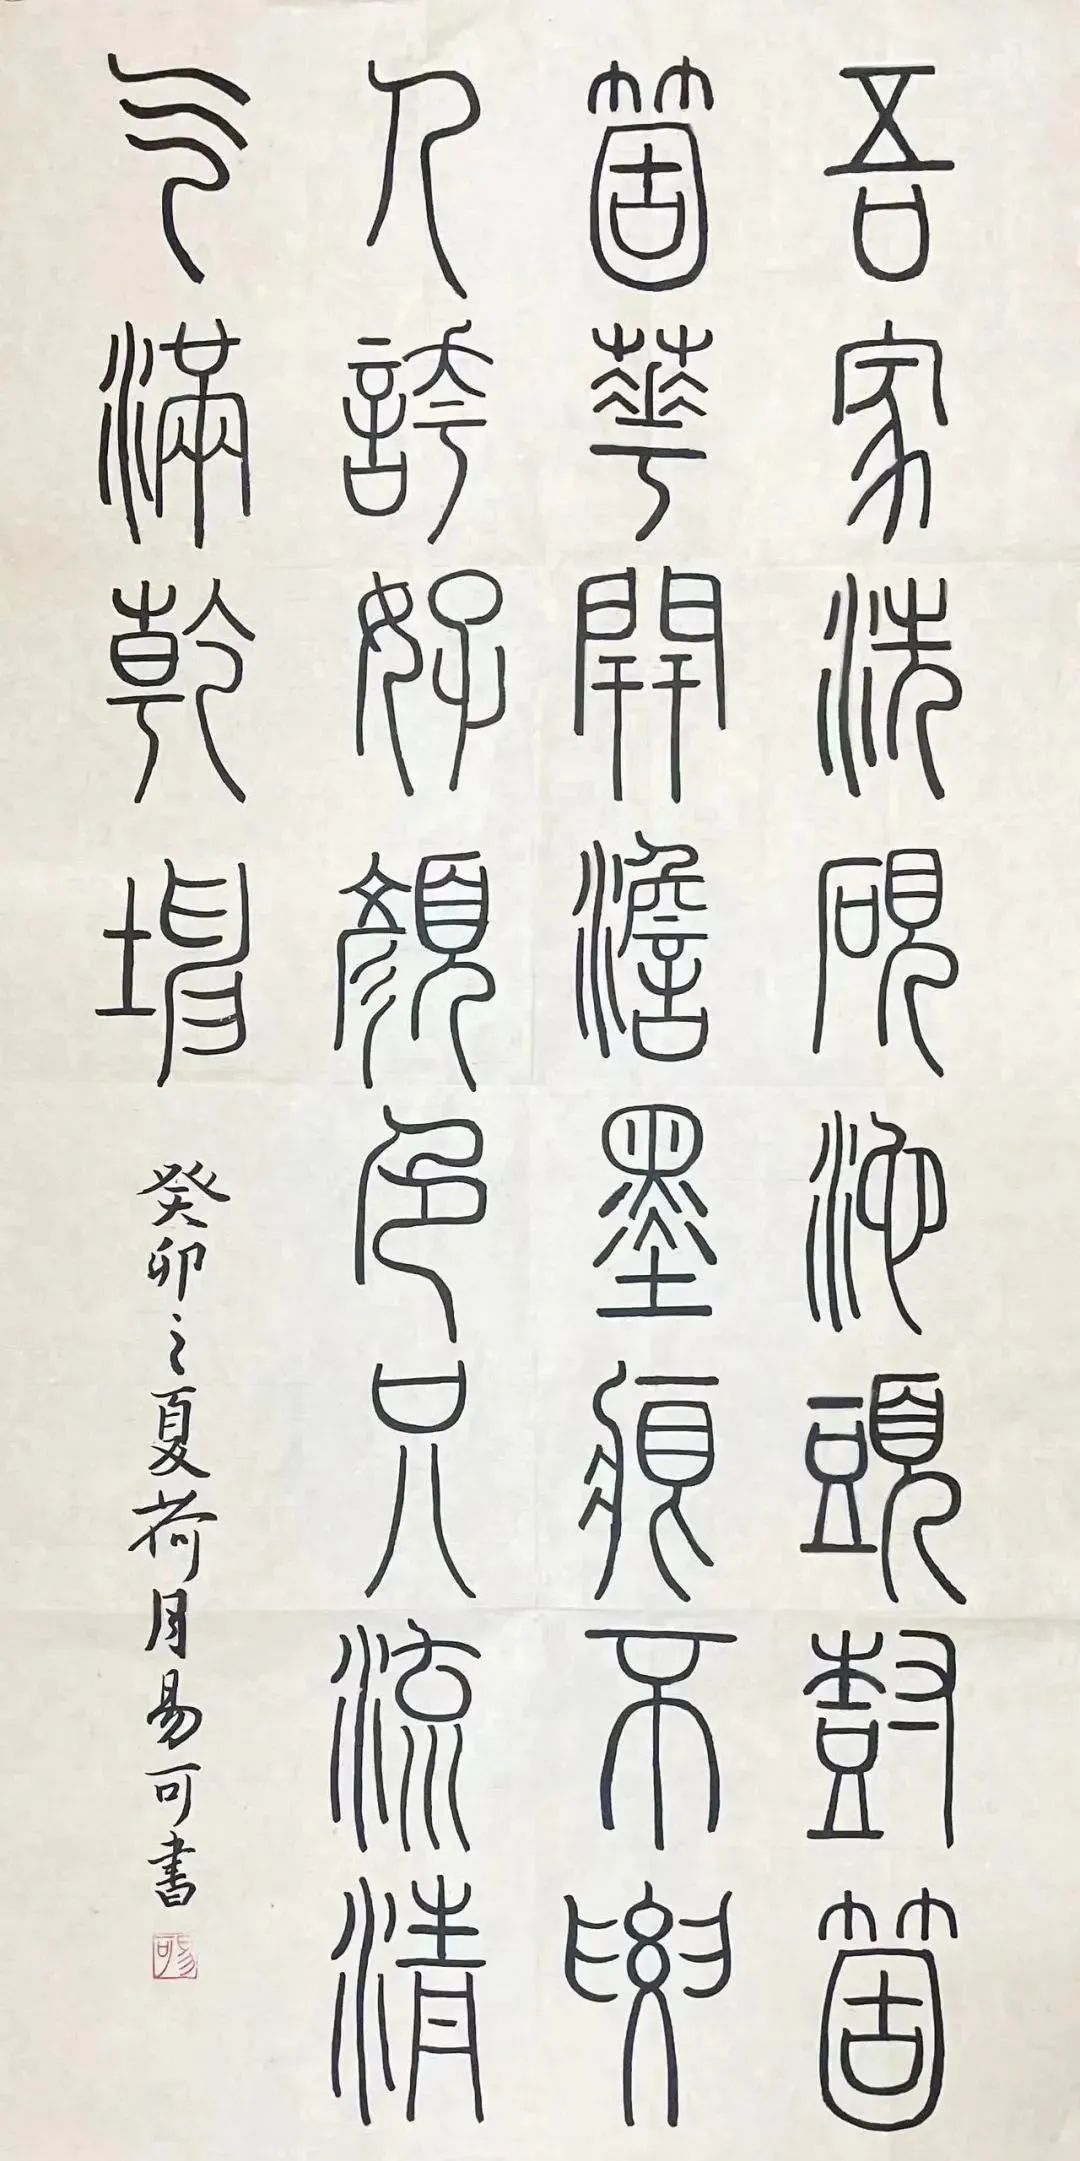 吾家洗硯池頭尌箇
箇華開澹墨痕不要
人誇好顏色只流清
气滿乾坤
癸卯之夏荷月易可書
易可